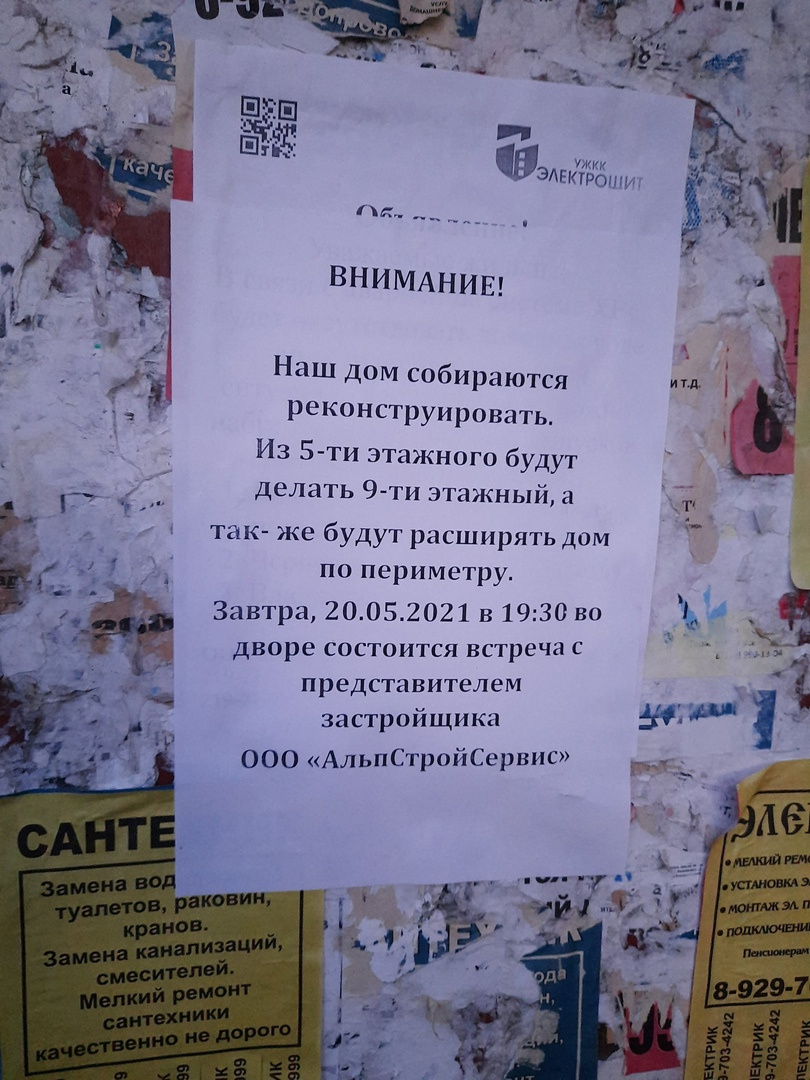 УЖКК
ЭЛЕКТРОЩИТ
ВНИМАНИЕ!
Наш дом собираются
реконструировать.
Из 5-ти этажного будут
делать 9-ти этажный, а
так- же будут расширять дом
по периметру.
Завтра, 20.05.2021 в 19:30 во
дворе состоится встреча с
представителем
застройщика
ООО «АльпСтройСервис»
и т.д.
САНТЕ
Замена вод
туалетов, раковин,
кранов.
Замена канализаций,
смесителей.
Мелкий ремонт
сантехники
качественно не дорого
ЭЛЕ
• МЕЛКИЙ РЕМ
• УСТАНОВКА Э
• МОНТАЖ ЭЛ. П
• ПОДКЛЮЧЕНИ
Пенсионерам
8-929-7